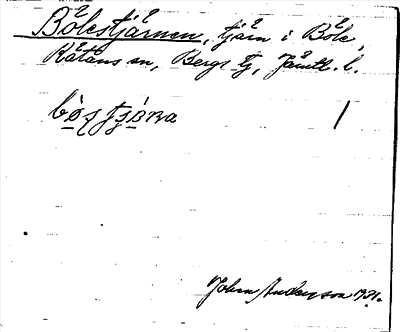 Bölestjärnen, tjärn i Böle,
Rätans sn, Bergs tg, Jämtl. l.
Johan Anderson 1931.